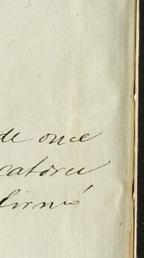 de once
catorce
firmó